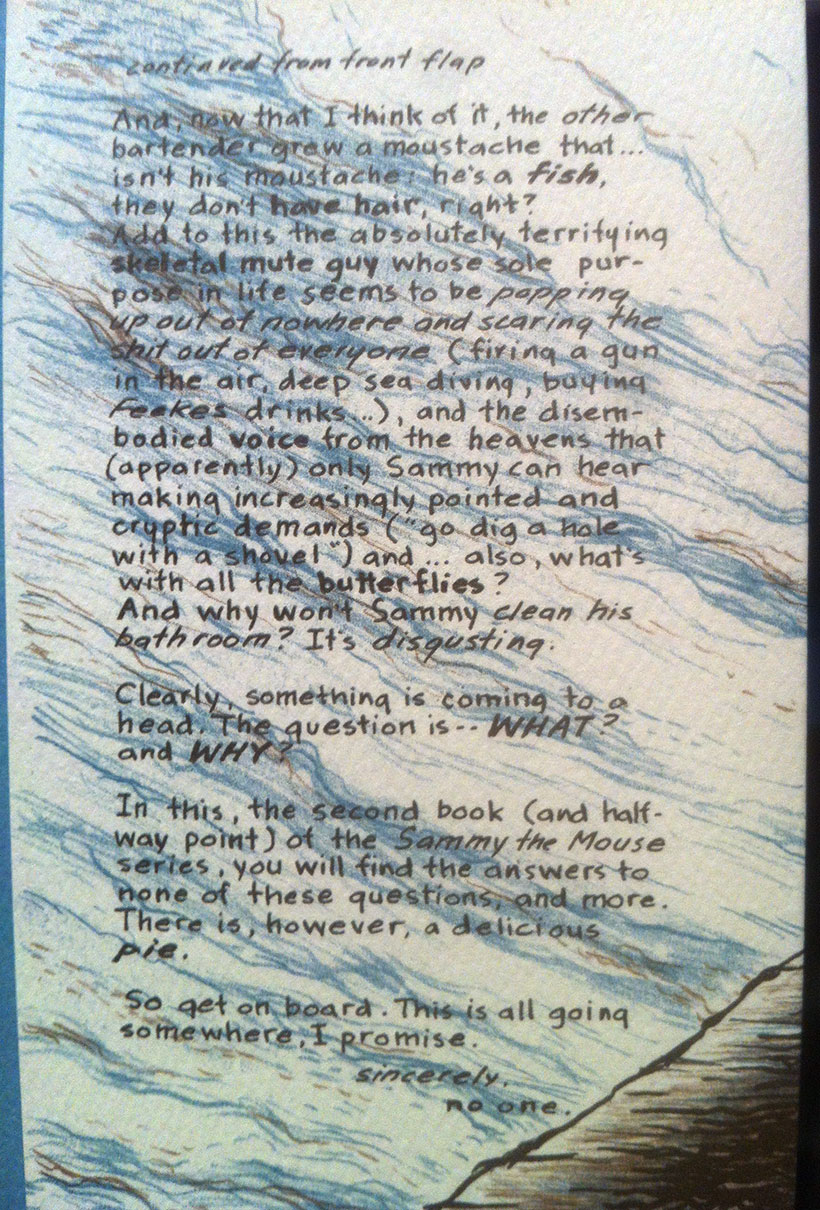 continued from front flap
And, now that I think of it, the other
bartender grew a moustache that...
isn't his moustache: he's a fish,
they don't have hair, right?
Add to this the absolutely terrifying
skeletal mute guy whose sole pur-
pose in life seems to be popping
up out of nowhere and scaring the
shit out of everyone (firing a gun
in the air, deep sea diving, buying
Feekes drinks...), and the disem-
bodied voice from the heavens that
(apparently) only Sammy can hear
making increasingly pointed and
cryptic demands ("go dig a hole
with a shovel") and ... also, what's
with all the butterflies?
And why won't Sammy clean his
bathroom? It's disgusting.
Clearly, something is coming to a
head. The question is-- WHAT?
and WHY?
In this, the second book (and half-
way point) of the Sammy the Mouse
series, you will find the answers to
none of these questions, and more.
There is, however, a delicious
pie.
So get on board. This is all going
somewhere, I promise.
sincerely,
no one.